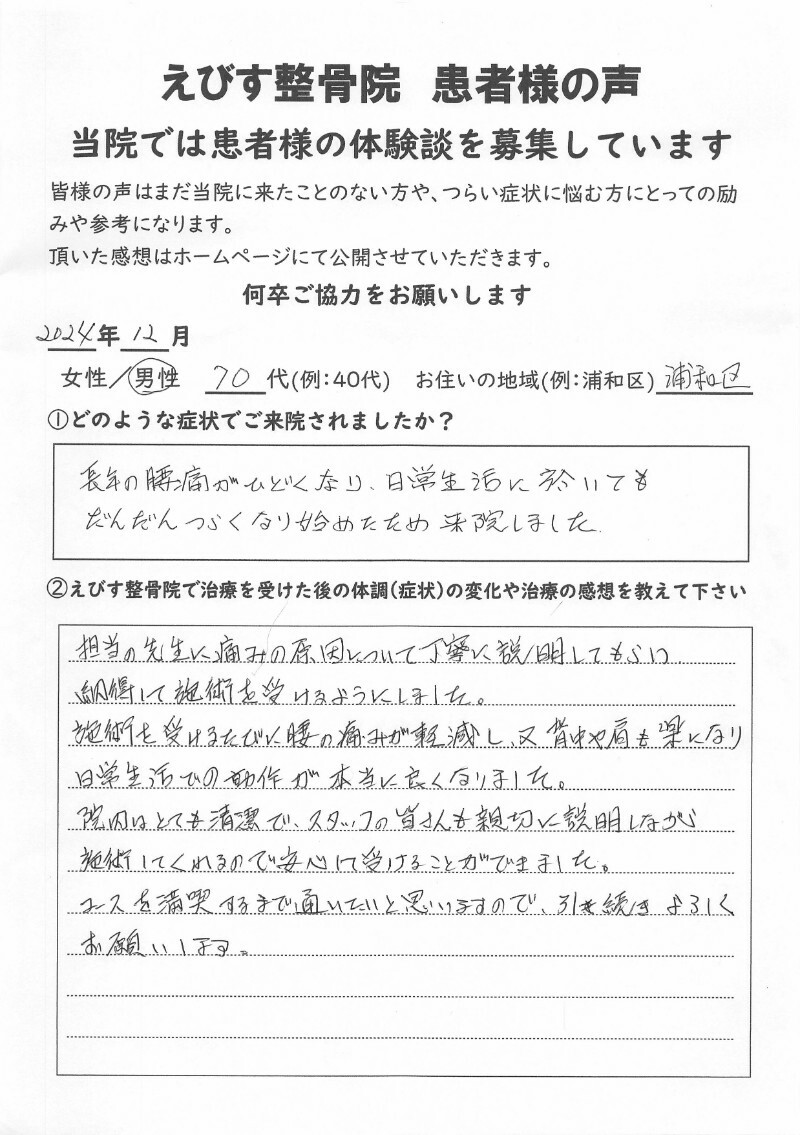 えびす整骨院 患者様の声
当院では患者様の体験談を募集しています
皆様の声はまだ当院に来たことのない方や、つらい症状に悩む方にとっての励
みや参考になります。
頂いた感想はホームページにて公開させていただきます。
何卒ご協力をお願いします
2024年12月
女性／男性 70代(例：40代) お住いの地域(例：浦和区) 浦和区
①どのような症状でご来院されましたか？
長年の腰痛がひどくなり、日常生活に於いても
だんだんつらくなり始めたため来院しました
②えびす整骨院で治療を受けた後の体調(症状)の変化や治療の感想を教えて下さい
担当の先生に痛みの原因について丁寧に説明してもらい
納得して施術を受けるようにしました。
施術を受けるたびに腰の痛みが軽減し、又背中や肩も楽になり
日常生活での動作が本当に良くなりました。
院内はとても清潔で、スタッフの皆さんも親切に説明しながら
施術してくれるので安心して受けることができました。
コースを満喫するまで通いたいと思いますので、引き続きよろしく
お願いします。